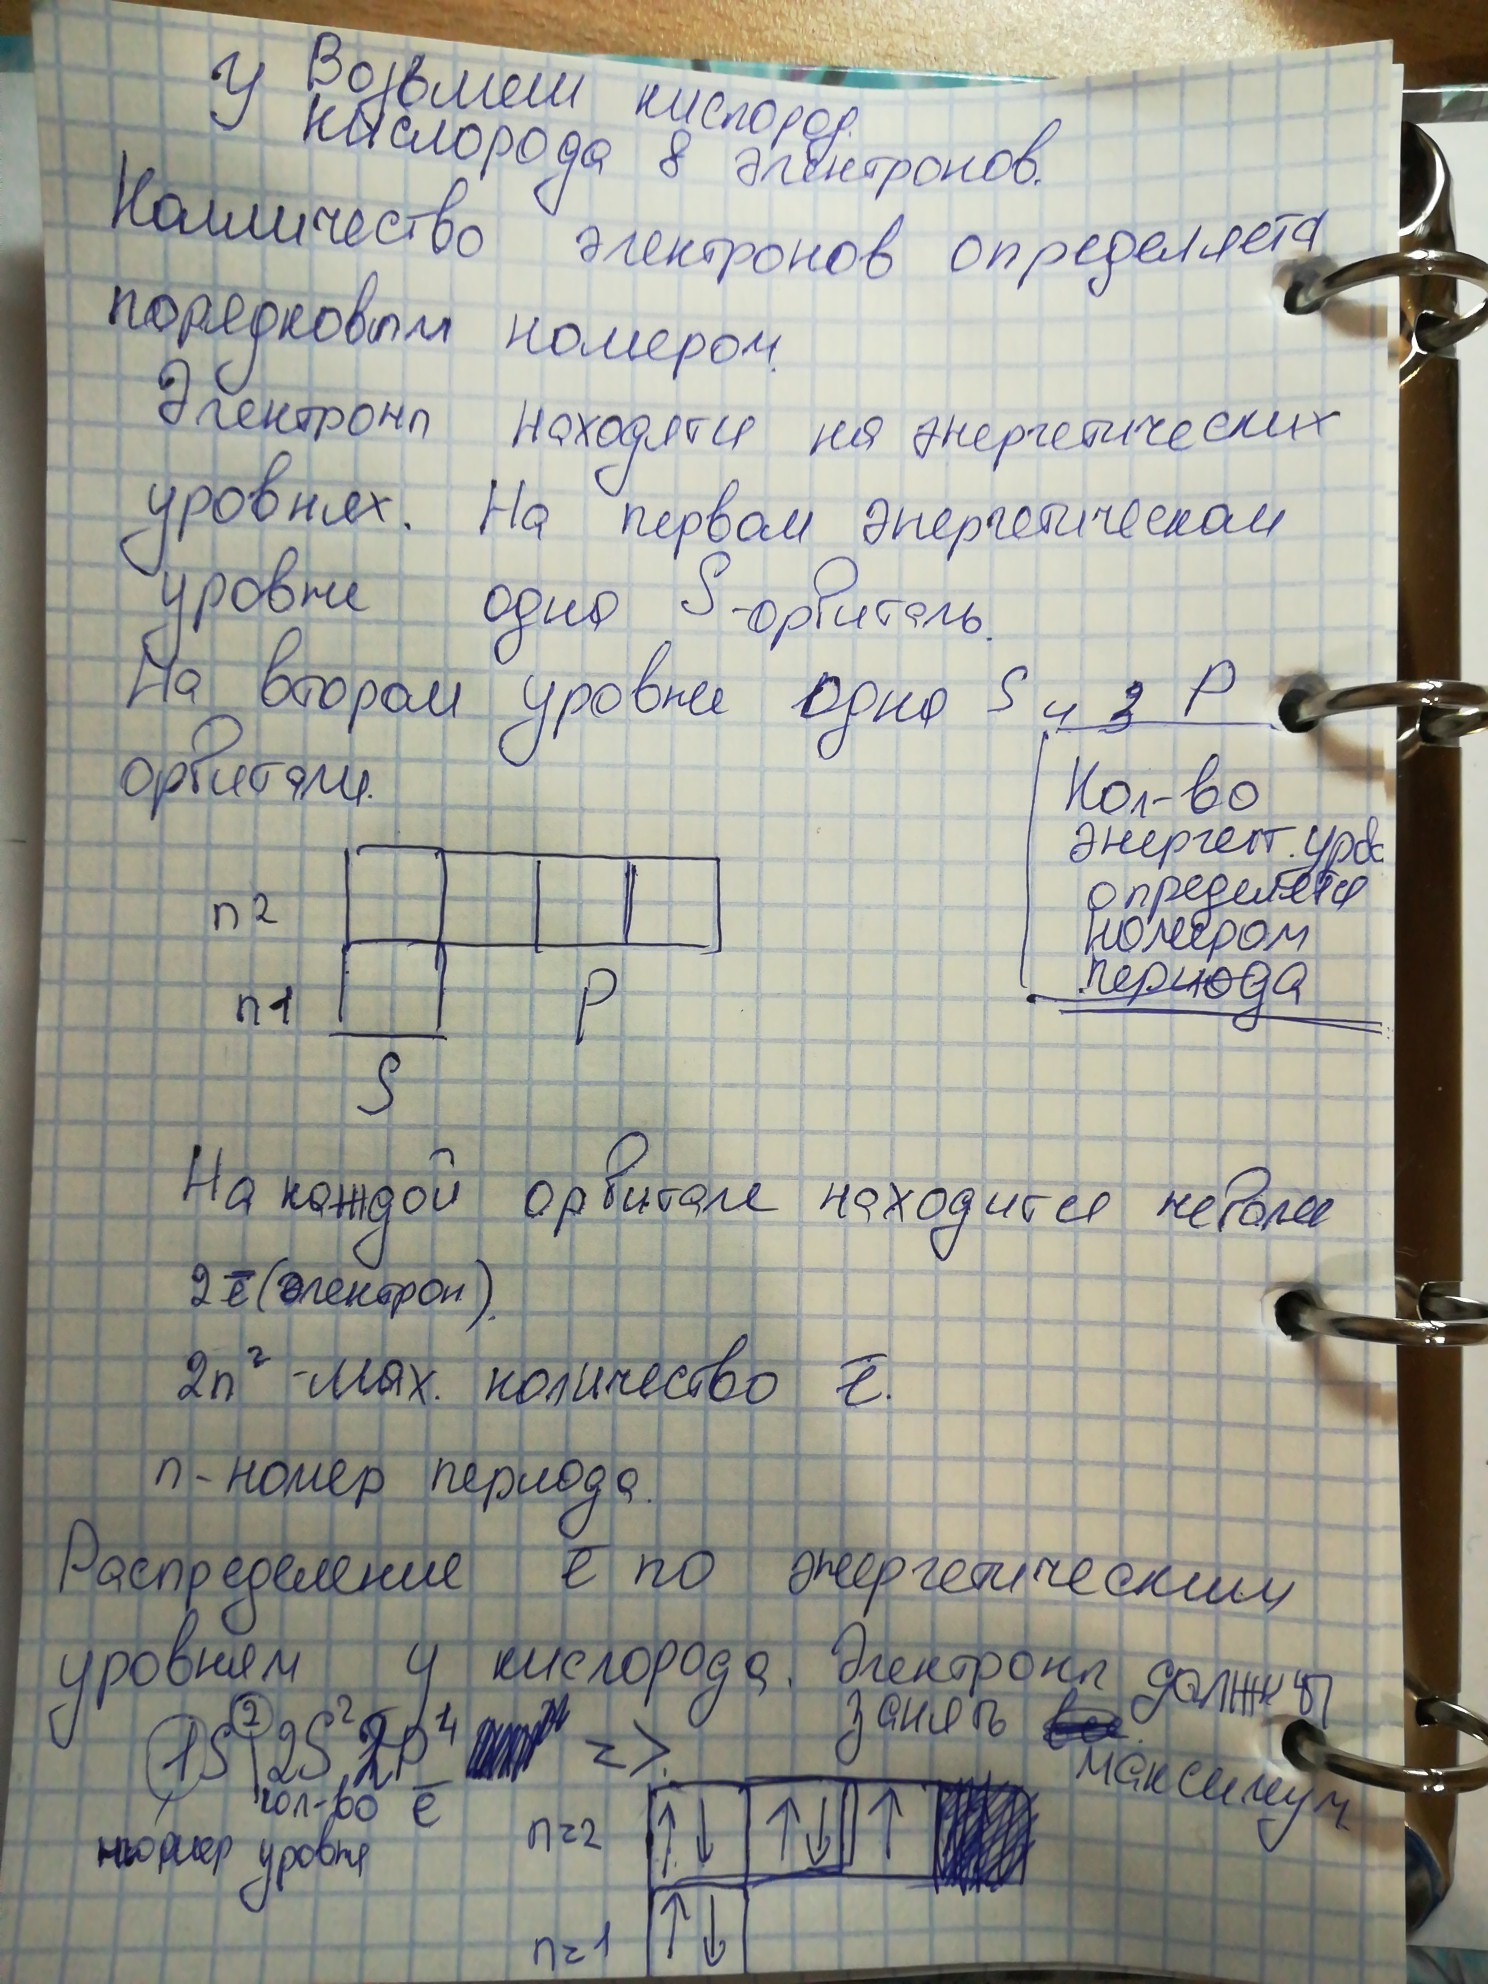 Возьмем кислород.
У кислорода 8 электронов.
Колличество электронов определяется
порядковым номером.
Электроны находятся на энергетических
уровнях. На первом энергетическом
уровне одна S-орбиталь.
На втором уровне одна S и 3 P
орбитали.
Кол-во
энергет. уров
определяется
номером
периода
n2
n1
P
S
На каждой орбитале находится не более
2ē (электрон).
2n² - мах. количество ē.
n - номер периода.
Распределение ē по энергетическим
уровням у кислорода. Электроны должны
занять
максимум
1S² 2S² 2P⁴ =>
кол-во ē
номер уровня
n=2 ↑↓ ↑↓ ↑
n=1 ↑↓